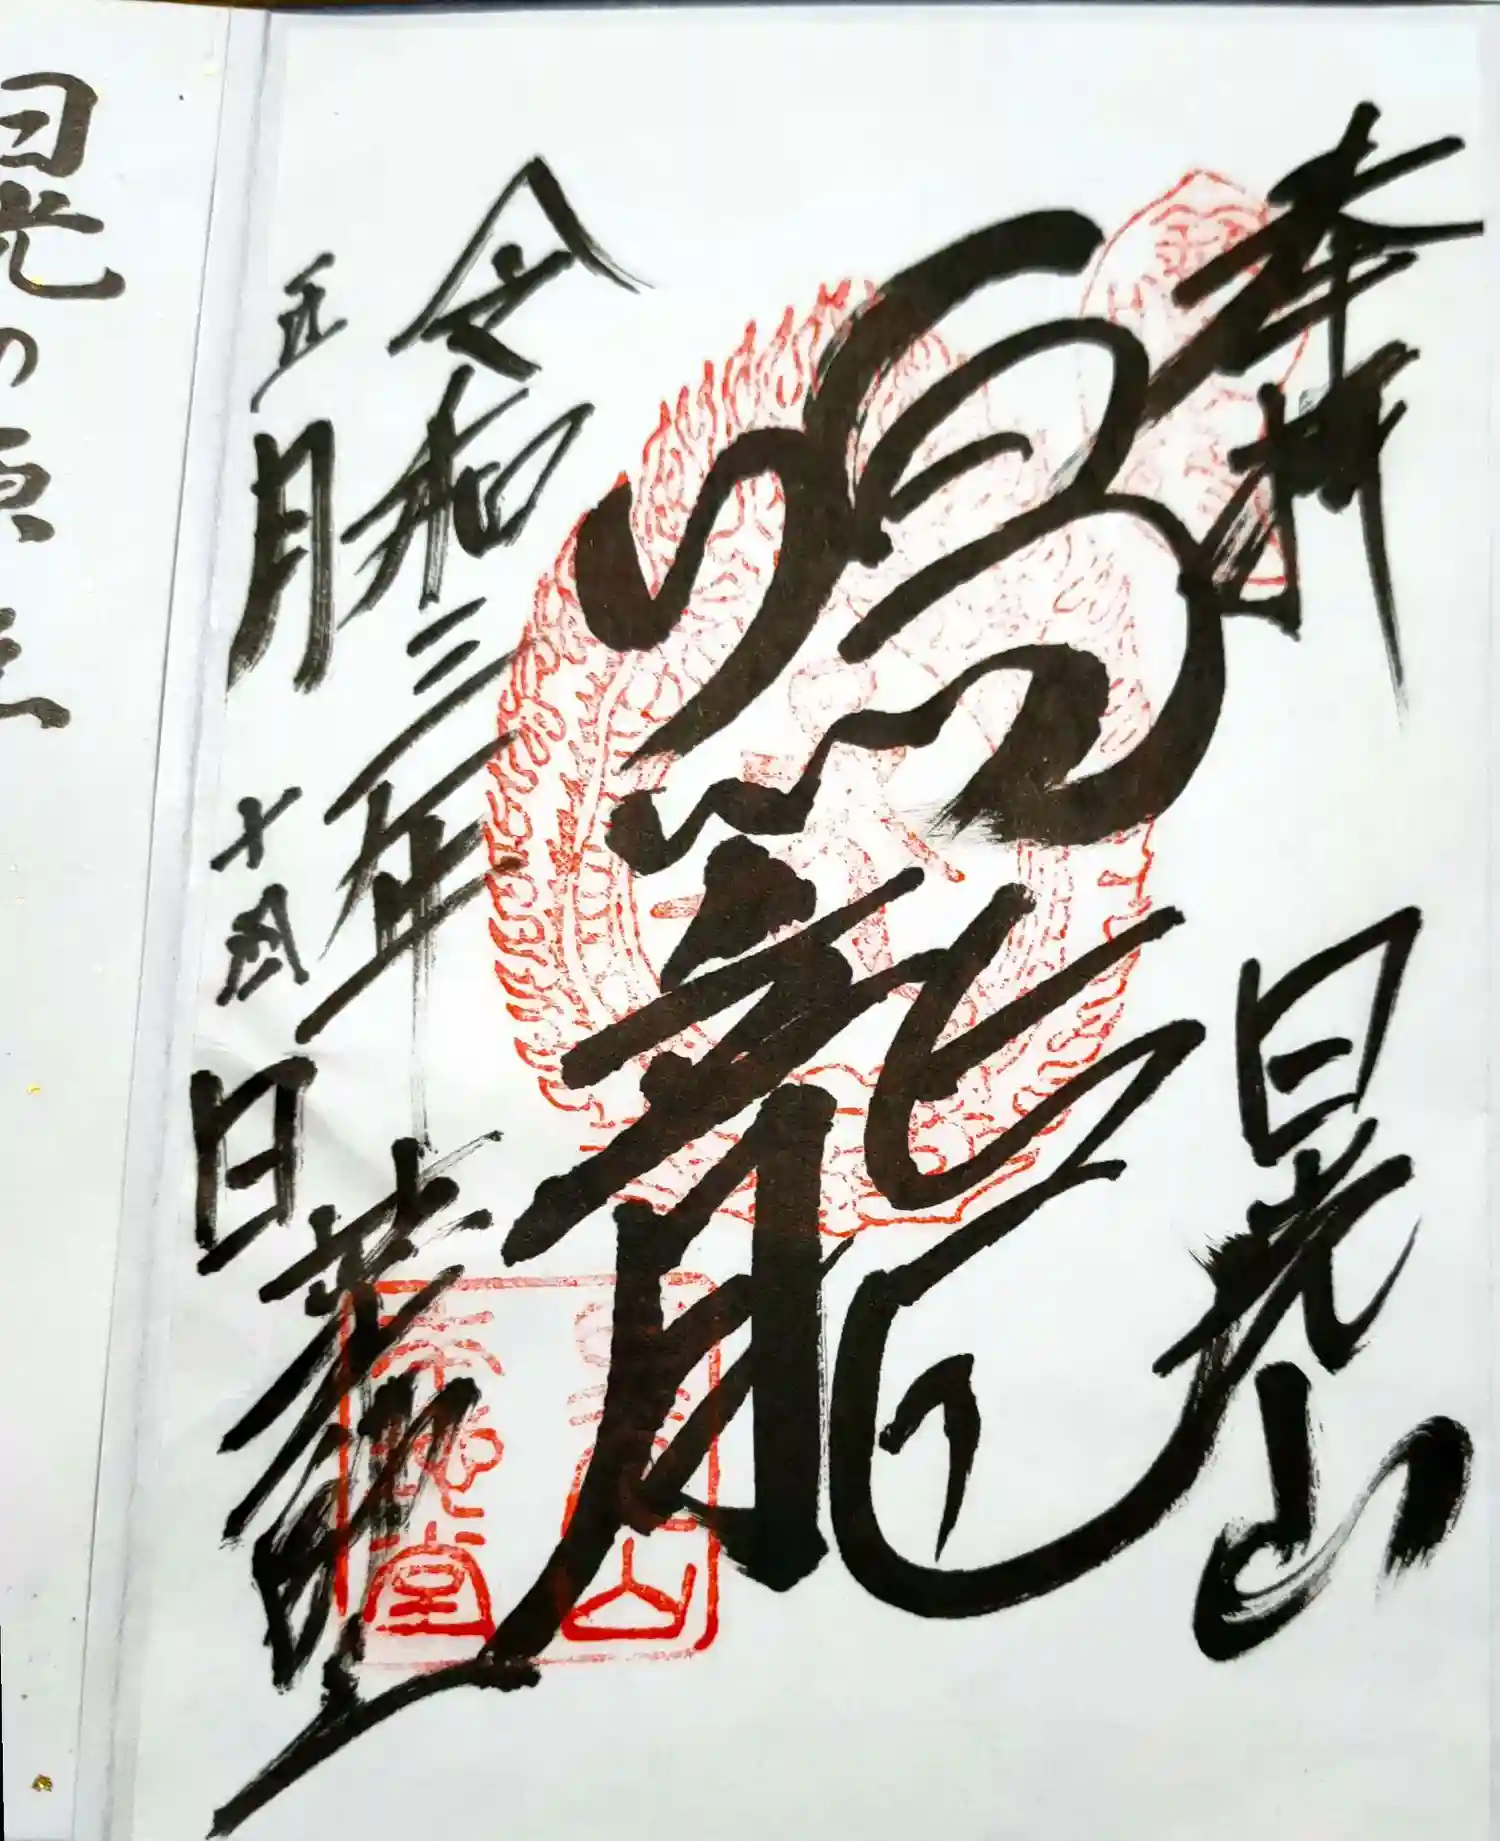 奉拝 日光山
鳴龍
令和三年 薬師堂
五月十四日
日光山
薬師堂
日光の